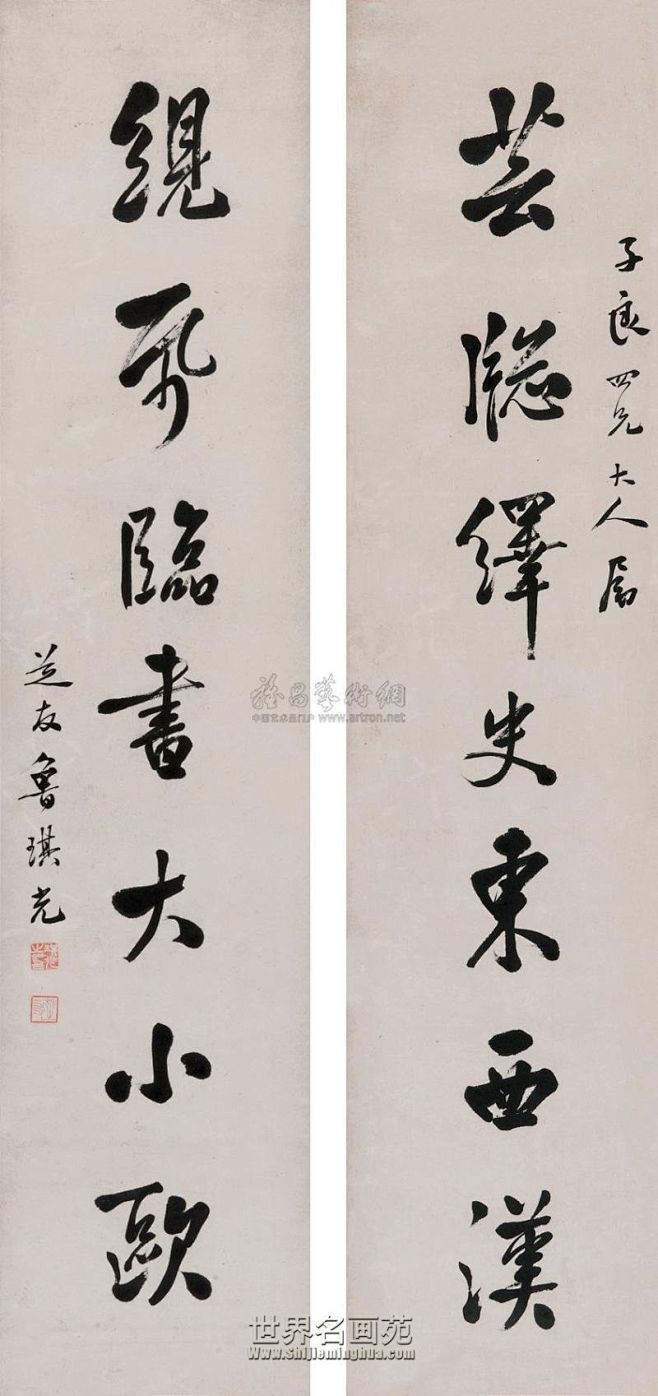 子良四兄大人屬
芸牎繹史東西漢
絸帋臨書大小歐
芝友魯琪光
雅昌藝術網
中国艺术品门户 www.artron.net
世界名画苑
www.shijieminghua.com